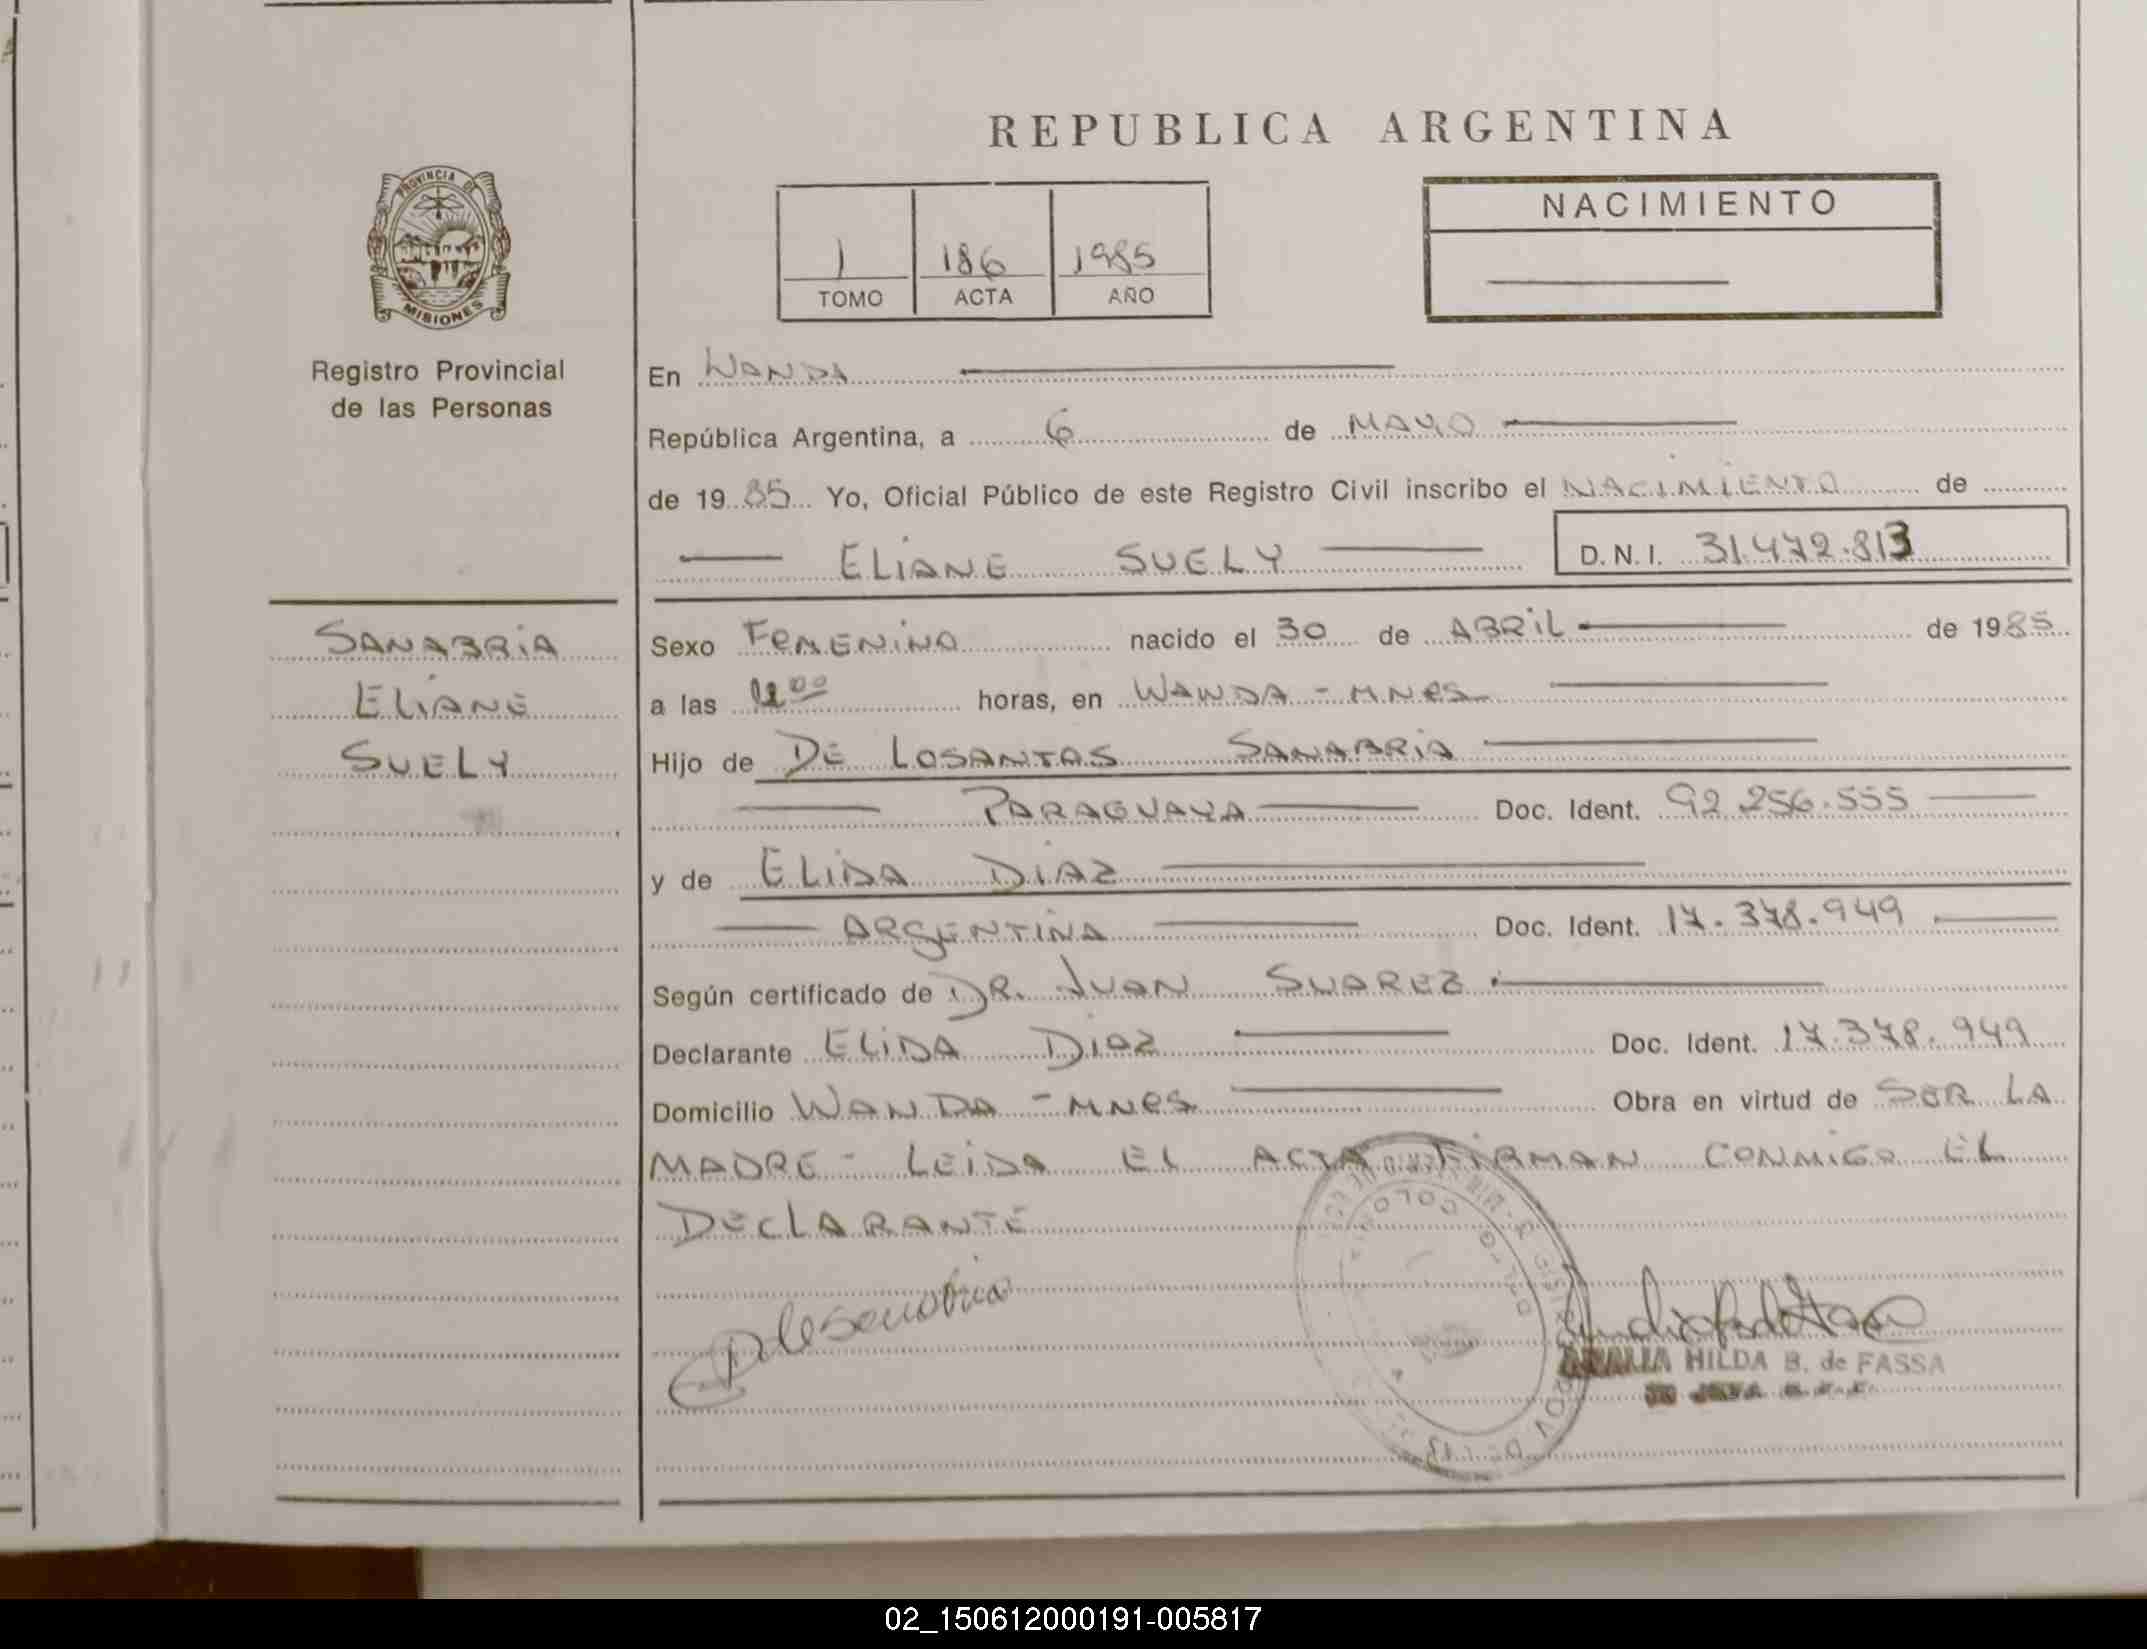 REPUBLICA ARGENTINA
PROVINCIA DE
MISIONES
Registro Provincial
de las Personas
1 186 1985
TOMO ACTA AÑO
NACIMIENTO
En WANDA
República Argentina, a 6 de MAYO
de 1985 Yo, Oficial Público de este Registro Civil inscribo el NACIMIENTO de
ELIANE SUELY D.N.I. 31.472.813
SANABRIA
ELIANE
SUELY
Sexo FEMENINO nacido el 30 de ABRIL de 1985
a las horas, en WANDA - MNES
Hijo de DE LOSANTOS SANABRIA
PARAGUAYA Doc. Ident. 92.256.555
y de ELIDA DIAZ
ARGENTINA Doc. Ident. 17.378.949
Según certificado de DR. JUAN SUAREZ.
Declarante ELIDA DIAZ Doc. Ident. 17.378.949
Domicilio WANDA - MNES Obra en virtud de SER LA
MADRE - LEIDA EL ACTA FIRMAN CONMIGO EL
DECLARANTE
HILDA B. de FASSA
02_150612000191-005817